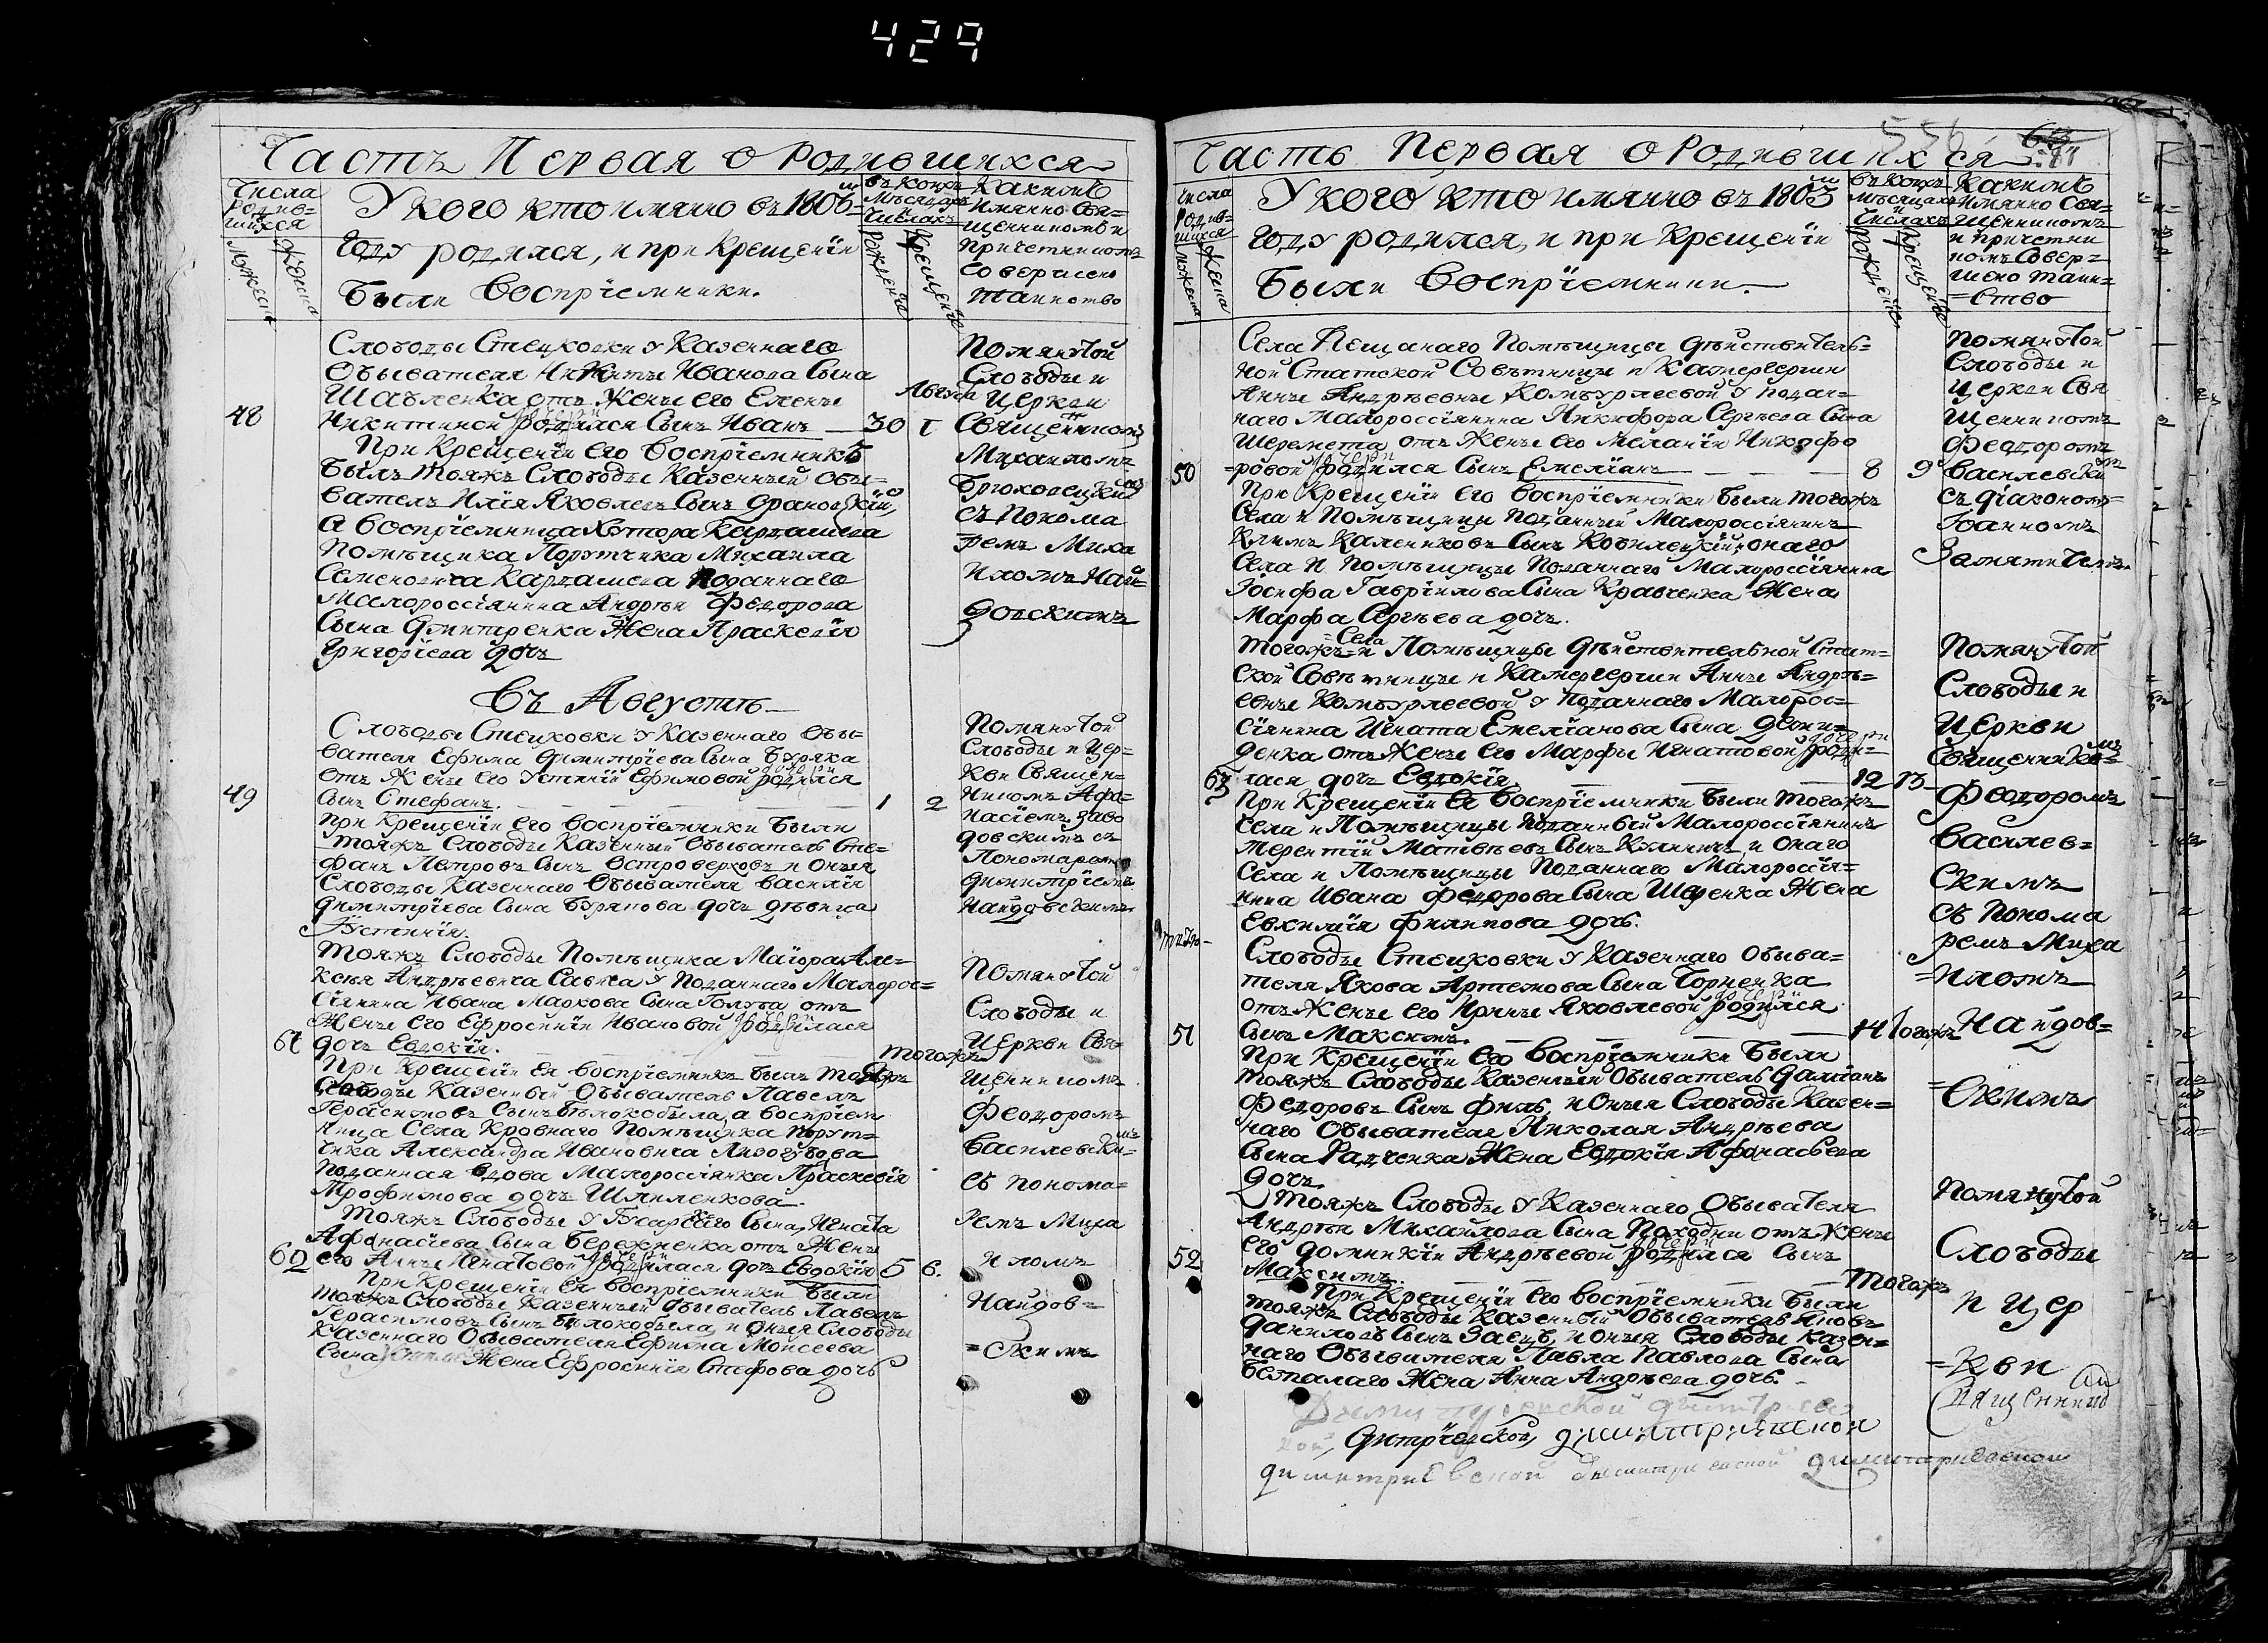 429
Часть Первая о Родившихся
Числа родив=шихся
Мужеска
Женска
У кого кто имянно въ 1803м
Году родился, и при Крещеніи
были Воспріемники.
въ коихъ Мѣсяцахъ и Числахъ
рожденіе
Крещеніе
Какимъ имянно Свя=
щенникомъ и
причетникомъ
Совершено
таинство
Слободы Стецковки у Казеннаго
Обывателя Никиты Иванова Сына
Шавленка отъ Жены его Елены
48 Никитиной дочери родился Сынъ Иванъ — 30 Августа 1
При Крещеніи его Воспріемникъ
былъ тояжъ Слободы Казенный Обы=
ватель Илія Яковлевъ Сынъ
а воспріемница Хутора Кардашева
Помѣщика Порутчика Михаила
Семеновича Кардашева Поданнаго
Малороссіянина Андрѣя Федорова
Сына Дмитренка Жена Праскевія
Григоріева дочь
Помянутой
Слободы и
Церкви
Священникомъ
Михаиломъ
Брюховецкимъ
съ Понома
ремъ Миха
иломъ Най=
довскимъ
Въ Августѣ
Слободы Стецковки у Казеннаго Обы=
вателя Ефима Димитріева Сына Буряка
отъ Жены его Устиніи Ефимовой дочери родился
49 Сынъ Стефанъ. 1 2
При Крещеніи его воспріемники были
тояжъ Слободы Казенный Обыватель Сте=
фанъ Петровъ Сынъ Островерховъ и оныя
Слободы Казеннаго Обывателя Василія
Димитріева Сына Бурякова дочь дѣвица
Устинія.
Помянутой
Слободы и Цер=
кви Священ=
никомъ Афа=
насіемъ
довскимъ съ
Пономаремъ
Димитріемъ
Найдовскимъ
Тояжъ Слободы Помѣщика Маіора Але=
ксѣя Андрѣевича Савича у Поданнаго Малорос=
сіянина Ивана Маркова Сына Голуба отъ
Жены его Ефросиніи Ивановой дочери родилася
61 дочь Евдокія. тогожъ
При Крещеніи ея воспріемникъ былъ тояжъ
Слободы Казенный Обыватель Павелъ
Герасимовъ Сынъ Бѣлокобыла, а воспріем
ница Села Кровнаго Помѣщика Порут=
чика Александра Ивановича Лизогубова
Поданная вдова Малороссіянка Праскевія
Трофимова дочь Шпиленкова
Тояжъ Слободы у Сына Игната
Афанасіева Сына Бережненка отъ Жены
62 его Анны Игнатовой дочери родилася дочь Евдокія 5 6.
При Крещеніи ея воспріемники были
тояжъ Слободы Казенный Обыватель Павелъ
Герасимовъ Сынъ Бѣлокобыла, и оныя Слободы
Казеннаго Обывателя Ефима Моисеева
Сына Жена Ефросинія дочь
Помянутой
Слободы и
Церкви Свя=
щенникомъ
Феодоромъ
Василевски=мъ
съ Понома=
ремъ Миха
иломъ
Найдов=
=скимъ
Часть Первая о Родившихся
556
Числа родив=шихся
Мужеска
Женска
У кого кто имянно въ 1803м
Году родился, и при Крещеніи
были Воспріемники.
въ коихъ Мѣсяцахъ и Числахъ
рожденіе
Крещеніе
Какимъ
имянно Свя=
щенникомъ
и причетни
комъ Совер=
шено таин=
=ство
Села Пещанаго Помѣщицы дѣйствитель=
ной Статской Совѣтницы и Камергерши
Анны Андрѣевны Комбурлеевой у подан=
наго Малороссіянина Никифора Сергѣева Сына
Шеремета отъ Жены его Меланіи Никифо
50 =ровой дочери родился Сынъ Емеліанъ 8 9
При Крещеніи его воспріемники были тогожъ
Села и Помѣщицы поданный Малороссіянинъ
Климъ Калениковъ Сынъ и онаго
Села и Помѣщицы Поданнаго Малороссіянина
Іосифа Гавріилова Сына Кравченка Жена
Марфа Сергѣева дочь.
Помянутой
Слободы и
Церкви Свя
щенникомъ
Феодоромъ
Василевскимъ
съ діакономъ
Іоанномъ
Тогожъ Села и Помѣщицы дѣйствительной Стат=
ской Совѣтницы и Камергерши Анны Андрѣ=
евны Комбурлеевой у Поданнаго Малорос=
сіянина Игната Емеліанова Сына
денка отъ Жены его Марфы Игнатовой дочери роди=
63 лася дочь Евдокія 12 13
При Крещеніи ея воспріемники были тогожъ
Села и Помѣщицы Поданный Малороссіянинъ
Терентій Матвѣевъ Сынъ и онаго
Села и Помѣщицы Поданнаго Малороссія=
нина Ивана Федорова Сына Жена
Евхимія Филипова дочь.
Слободы Стецковки у Казеннаго Обыва=
теля Якова Артемова Сына Горненка
отъ Жены его Ирины Яковлевой дочери родился
51 Сынъ Максимъ. 14 тогожъ
При Крещеніи его воспріемники были
тояжъ Слободы Казенный Обыватель Даміанъ
Федоровъ Сынъ Филь, и оныя Слободы Казен=
наго Обывателя Николая Андрѣева
Сына Радченка Жена Евдокія Афанасьева
дочь
Помянутой
Слободы и
Церкви
Священнико=мъ
Феодоромъ
Василев=
Скимъ
съ Понома
ремъ Миха
=иломъ
Найдов=
=Скимъ
Тояжъ Слободы у Казеннаго Обывателя
Андрѣя Михайлова Сына Походни отъ Жены
52 его Домникіи Андрѣевой дочери родился Сынъ
Максимъ. тогожъ
При Крещеніи его воспріемники были
тояжъ Слободы Казенный Обыватель Яковъ
Даниловъ Сынъ Заецъ, и оныя Слободы Казен=
наго Обывателя Павла Павлова Сына
Безпалаго Жена Анна Андрѣева дочь.
Помянутой
Слободы
и Цер
=кви
Священнико
Дитріевской димитріевской
димитриевской димитриевской димитриевской